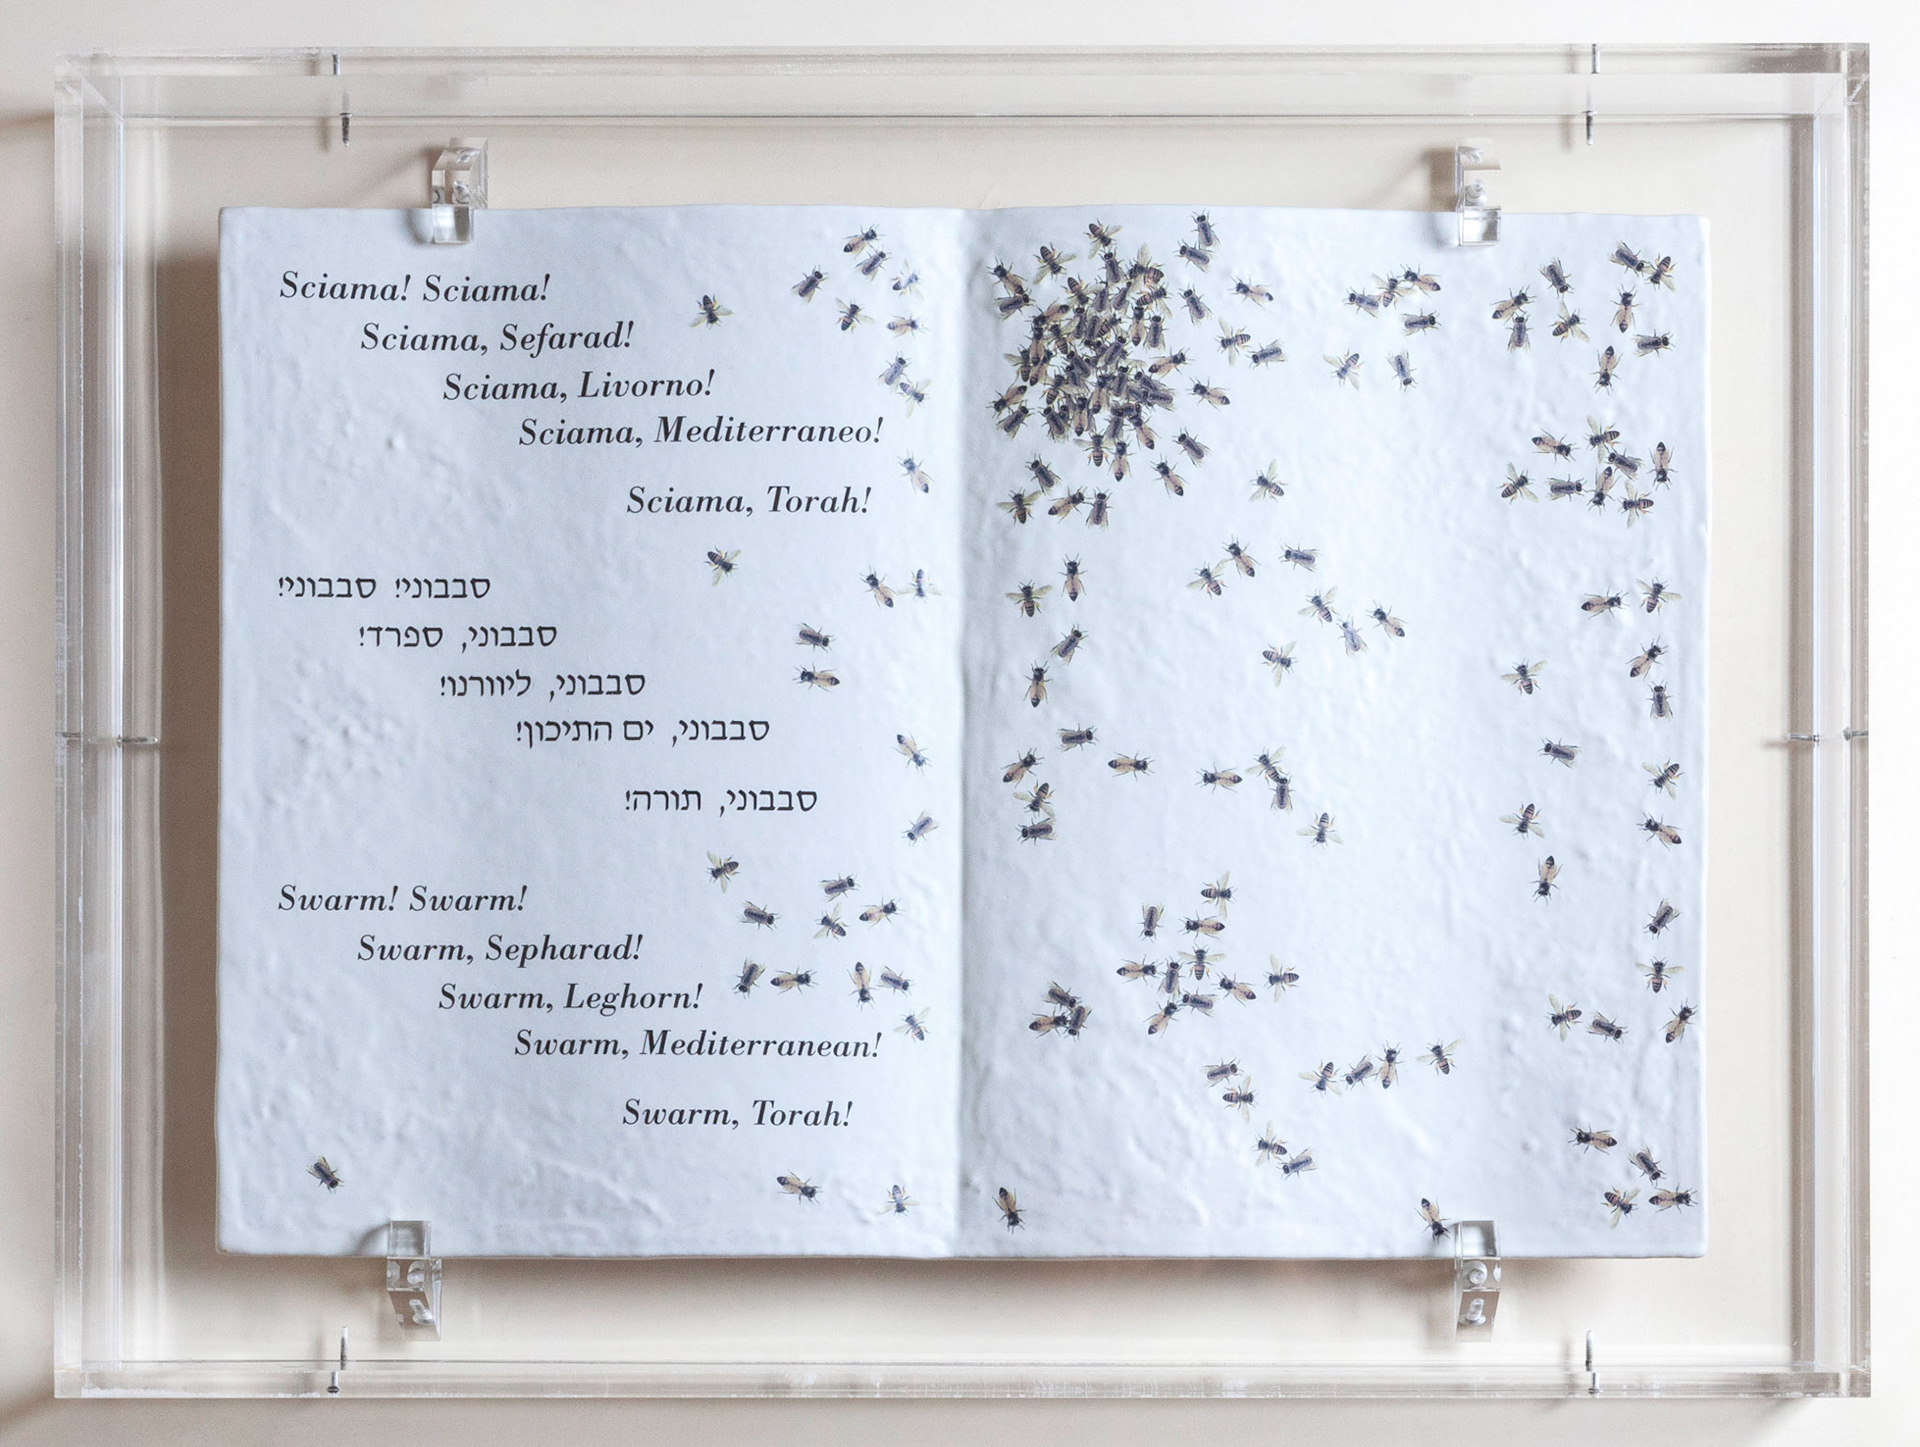 Sciama! Sciama!
Sciama, Sefarad!
Sciama, Livorno!
Sciama, Mediterraneo!
Sciama, Torah!
סבבוני! סבבוני!
סבבוני, ספרד!
סבבוני, ליוורנו!
סבבוני, ים התיכון!
סבבוני, תורה!
Swarm! Swarm!
Swarm, Sepharad!
Swarm, Leghorn!
Swarm, Mediterranean!
Swarm, Torah!